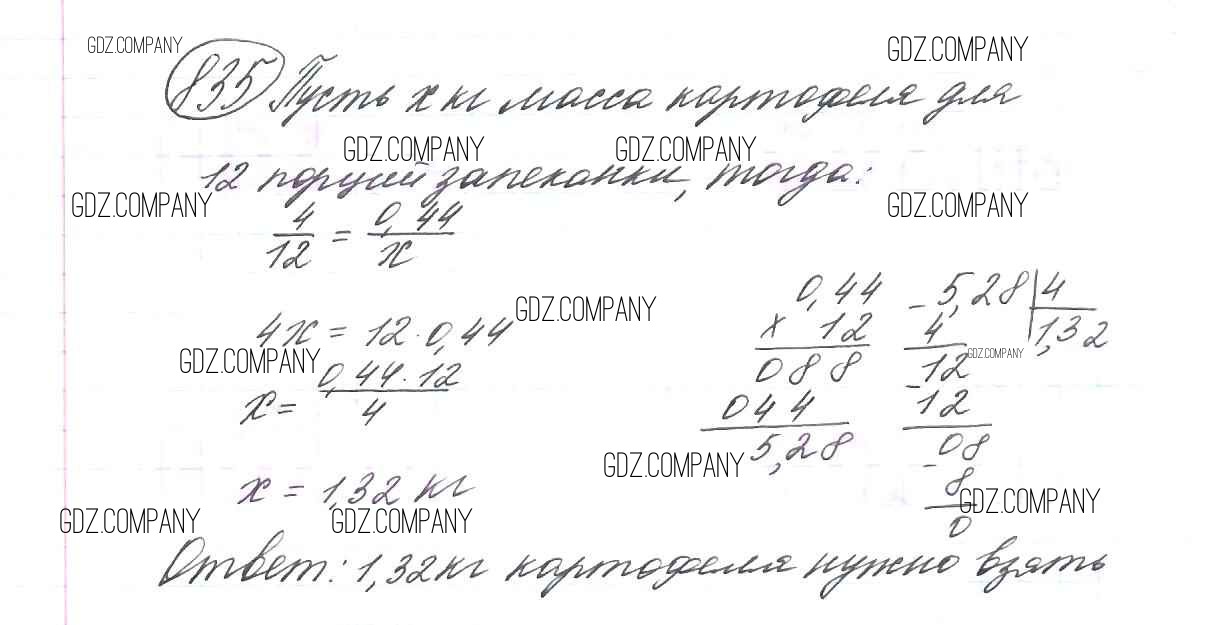 GDZ.COMPANY
GDZ.COMPANY
835 Пусть x кг масса картофеля для
GDZ.COMPANY GDZ.COMPANY
12 порций запеканки, тогда:
GDZ.COMPANY GDZ.COMPANY
4/12 = 0,44/x
GDZ.COMPANY
4x = 12 · 0,44
GDZ.COMPANY
x = 0,44 · 12/4
x = 1,32 кг
0,44
x 12
088
044
5,28
- 5,28 | 4
4 1,32
GDZ.COMPANY
- 12
12
- 08
8
0
GDZ.COMPANY
GDZ.COMPANY
GDZ.COMPANY GDZ.COMPANY
Ответ: 1,32 кг картофеля нужно взять